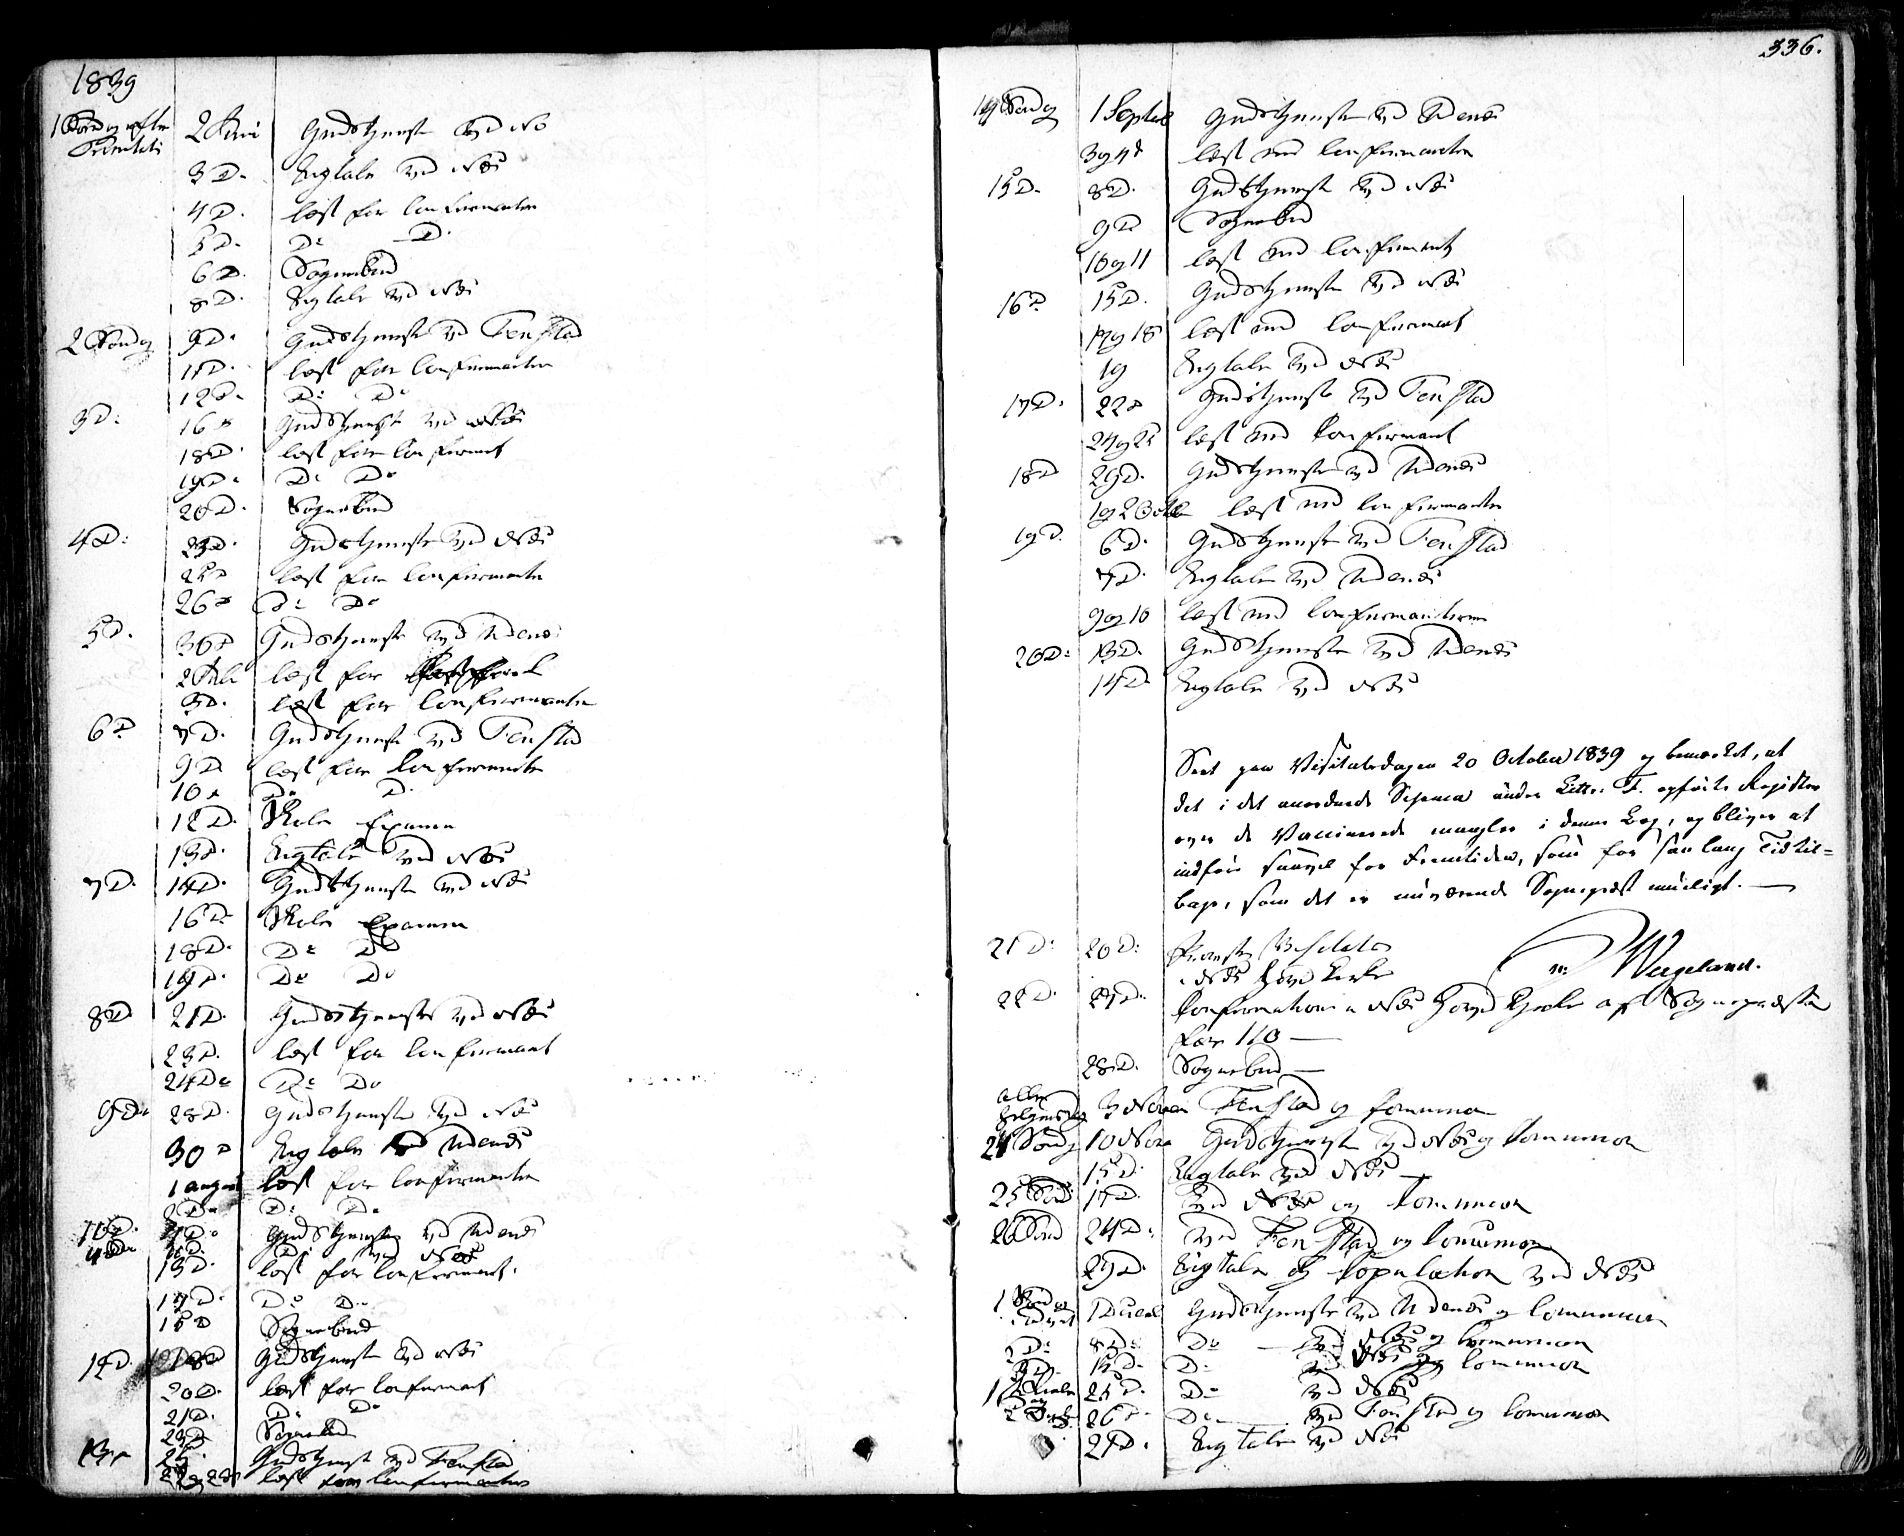 1839
1 Søndag efter 2 Juni Gudstjeneste ved Næs
Trinitatis
3 D. Liigtale ved Næs
4 D. læst for Confirmanter
5 D. Do D.
6 D. Sognebud
8 D. Liigtale ved Næs
2 Søndag 9 D. Gudstjeneste ved Fenstad
11 D. læst for Confirmanter
12 D. Do Do
3 D. 16 D Gudstjeneste ved Næs
18 D. læst for Confirmant
19 D. Do Do
20 D. Sognebud
4 D. 23 D. Gudstjeneste ved Næs
25 D læst for Confirmanter
26 D Do Do
5 D. 30 D Gudstjeneste ved Udenes
2 Juli læst for
3 D. læst for Confirmanter
6 D 7 D. Gudstjeneste ved Fenstad
9 D læst for Confirmanter
10 D D.
12 D. Skole Examen
13 D. Liigtale ved Næs
7 D. 14 D. Gudstjeneste ved Næs
16 D. Skole Examen
18 D. Do Do
19 D. Do Do
8 D 21 D. Gudstjeneste ved Næs
23 D. læst for Confirmant
24 D. Do Do
9 D. 28 D. Gudstjeneste ved Næs
30 D Liigtale ved Udenes
1 august læst for Confirmanter
2 D. D. D.
10 D. 4 D. Gudstjeneste ved Udenes
11 D. D. ved Næs
13 D. læst for Confirmant.
Do D.
15 D Sognebud
12 D. 18 D Gudstjeneste ved Næs
20 D. læst for Confirmant
21 D. D. D.
23 D Sognebud
13 D 25. Gudstjenest ved Fenstad
læst for Confirmanter
336.
14 Søndag 1 Septbr Gudstjeneste ved Udenes
3 og 4 D læst med Confirmanter
15 D. 8 D. Gudstjeneste ved Næs
9 D Sognebud
10 og 11 læst med Confirmant
16 D 15 D. Gudstjeneste ved Næs
17 og 18 læst med Confirmant
19 Liigtale ved Næs
17 D. 22 D Gudstjeneste ved Fenstad
24 og 25 læst med Confirmant
18 D 29 D. Gudstjeneste ved Udenes
1 og 2 Octbr læst med Confirmanter
19 D. 6 D. Gudstjeneste ved Fenstad
7 D. Liigtale ved Udenes
9 og 10 læst med Confirmanterne
20 D. 13 D. Gudstjeneste ved Udenes
14 D Liigtale ved Næs
Seet paa Visitatsdagen 20 October 1839 og bemærket, at
det i det anordnede Schema under Litter F. opførte Register
over de Vaccinerede mangler i denne Bog, og bliver at
indføre saavel for Fremtiden, som for saa lang Tid til=
bage, som det er nuværende Sognepræst mueligt. —
21 D. 20 D. Visitats
i Næs Hoved Kirke Wergeland.
22 D. 27 D. Confirmation i Næs Hoved Kirke af Sognepræsten
for 110 —
28 D. Sognebud —
Alle
Helgensdag 3 Novbr Fenstad og Communion
24 Sønd 10 Novbr Gudstjeneste ved Næs og Communion
15 D. Liigtale ved Næs —
25 Sønd 17 D. ved Næs og Communion
26 Sønd 24 D. ved Fenstad og Communion
29 D. Liigtale og Copulation ved Næs
1 Søndag
Advent 1 Decbr Gudstjeneste ved Udenes og Communion
2 D. 8 D. Do — ved Næs og Communion
3 D. 15 D. D. ved Næs og Communion
1 Juledag 25 D. D. ved Næs
2 Dag 26 D. D. ved Fenstad og Communion
27 D. Liigtale ved Næs